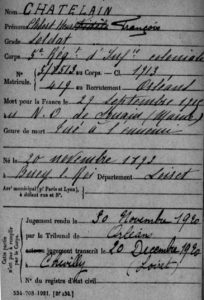 NOM CHATELAIN
Prénoms Albert François
Grade soldat
Corps 5e Rég't d'Inf'ie coloniale
N° au Corps. — Cl. 1913
Matricule. 419 au Recrutement Orléans
Mort pour la France le 29 septembre 1915
à N. O. de Souain (Marne)
Genre de mort Tué à l'ennemi
Né le 20 novembre 1893
à Bucy le Roi Département Loiret
Arr' municipal (p' Paris et Lyon),
à défaut rue et N°.
Cette partie n'est pas à remplir par le Corps.
Jugement rendu le 30 Novembre 1920
par le Tribunal de Orléans
jugement transcrit le 20 Décembre 1920
à (Loiret)
N° du registre d'état civil
534-708-1921. [26434.]